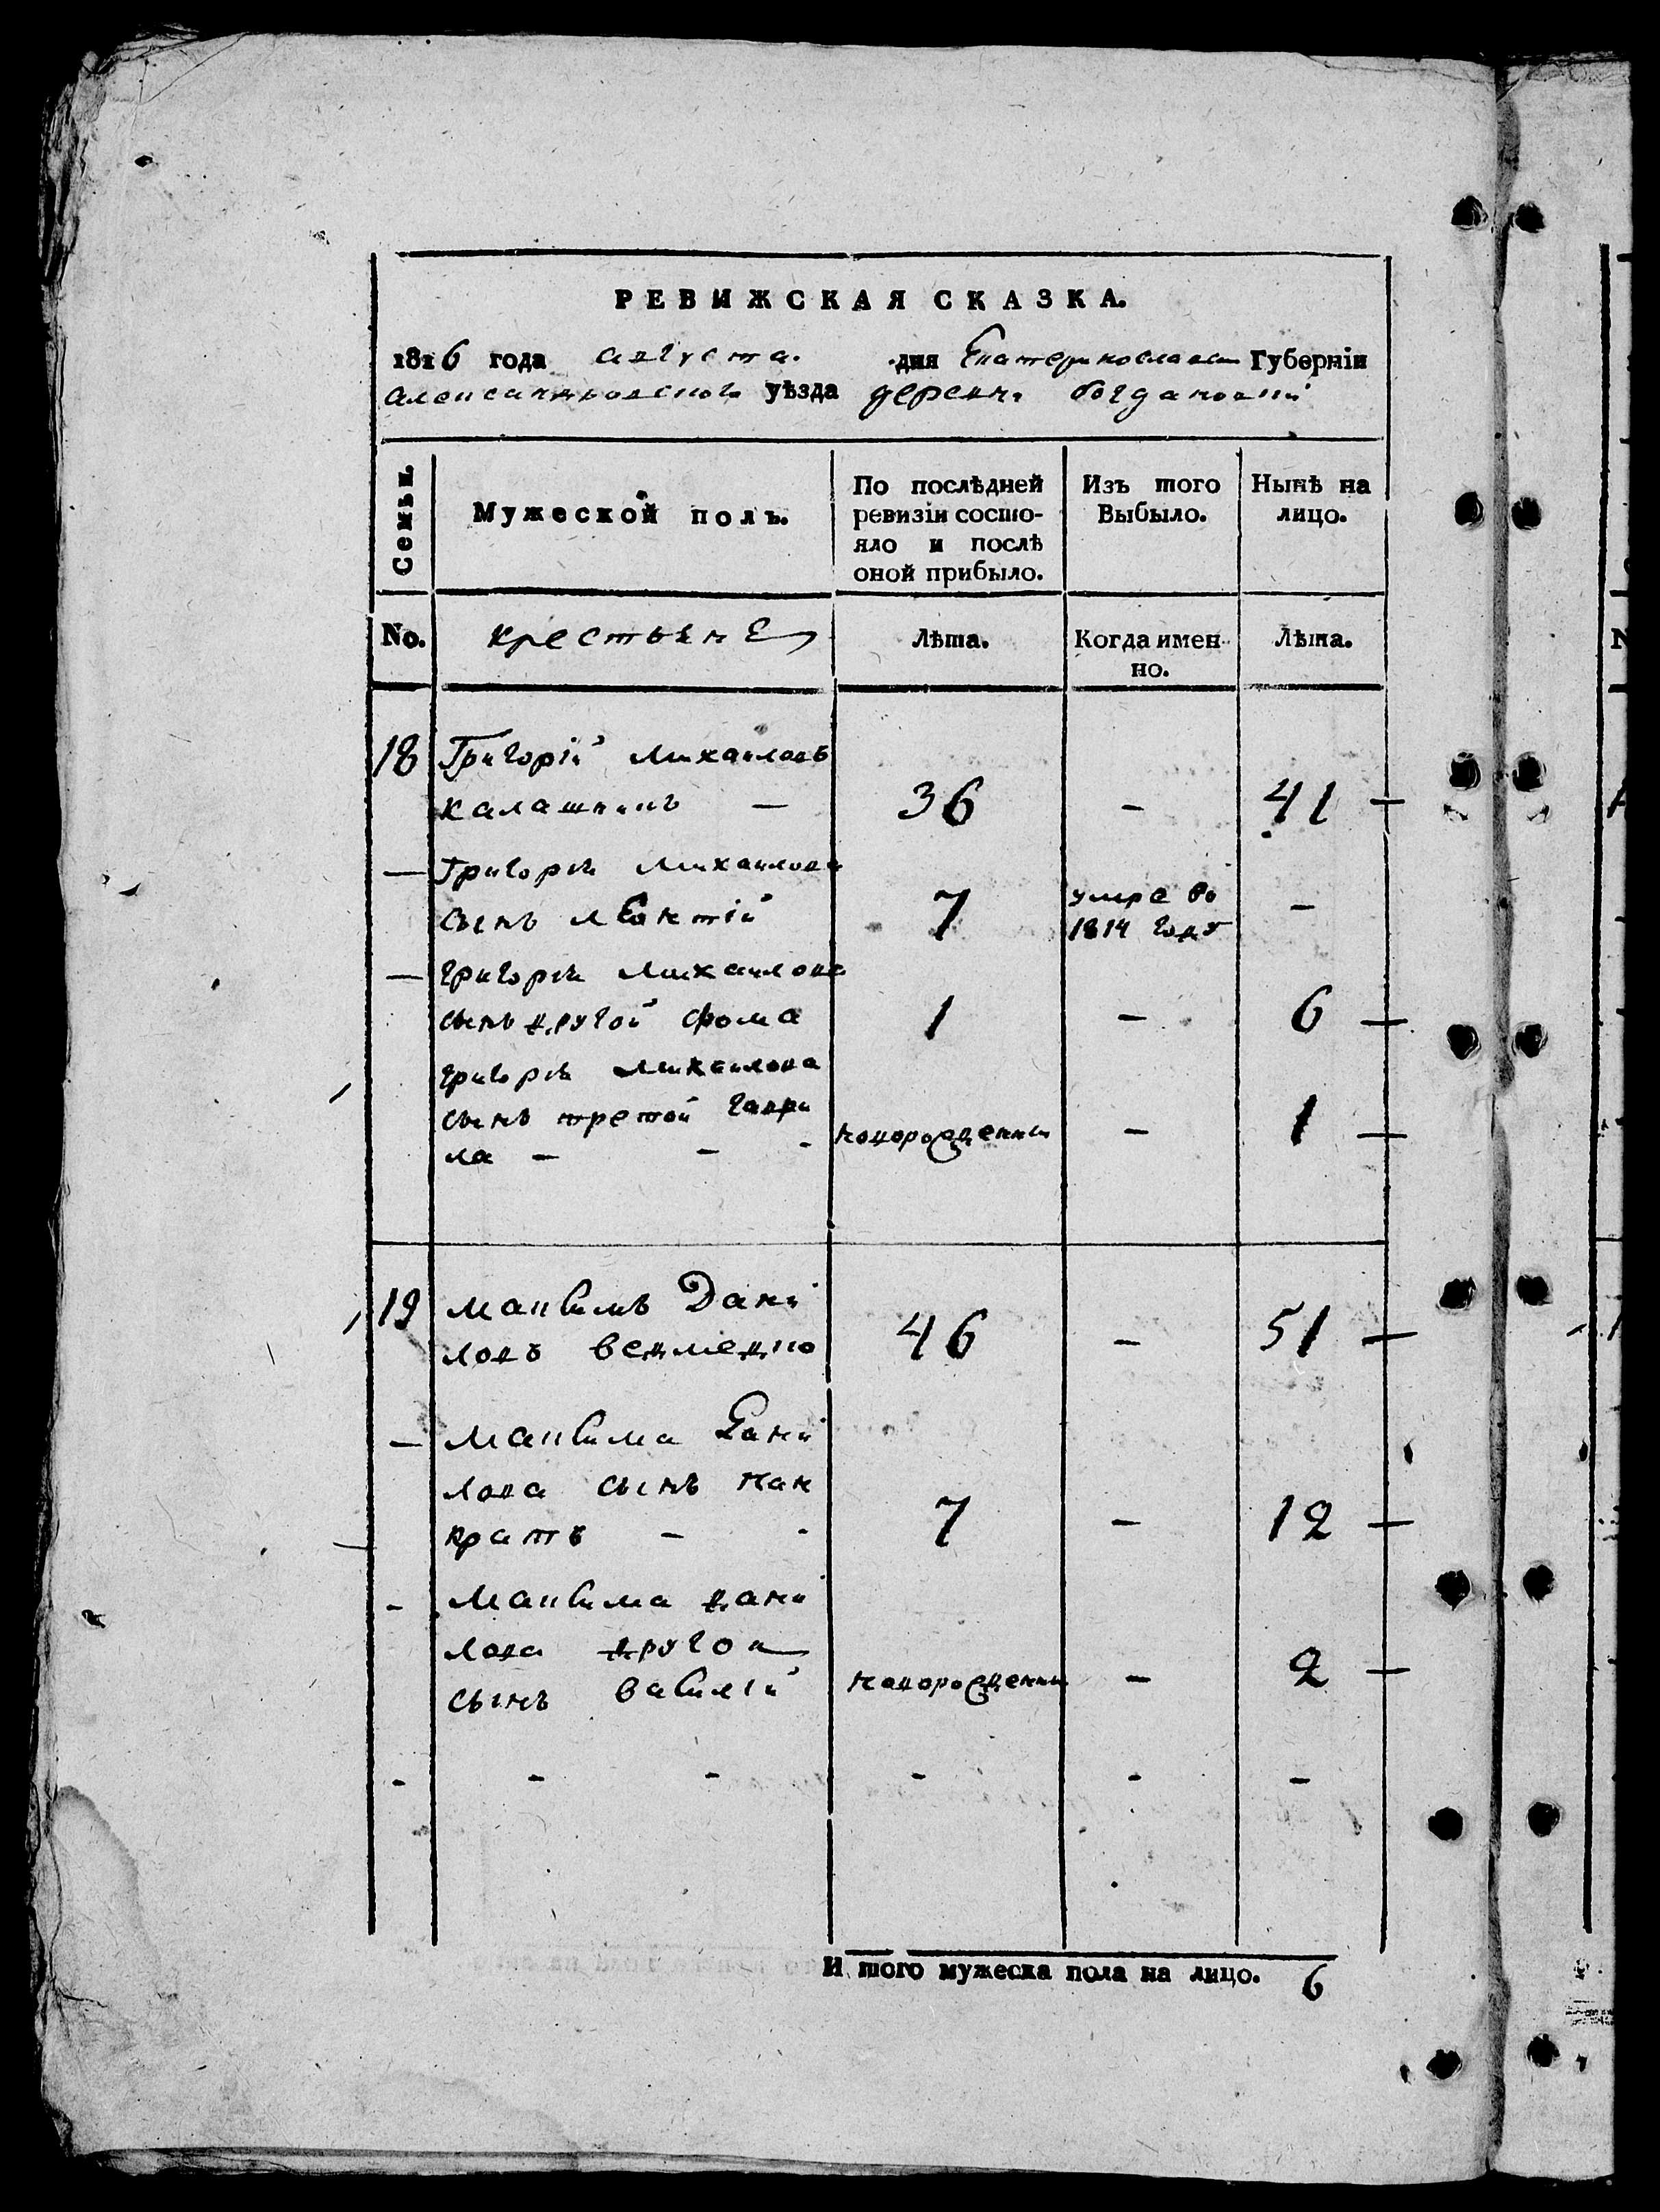 РЕВИЖСКАЯ СКАЗКА.
1816 года августа. дня Екатеринославск Губерніи
александровского уѣзда деревни богдановки
Семьи.
Мужеской полъ.
По послѣдней
ревизіи состо-
яло и послѣ
оной прибыло.
Изъ того
Выбыло.
Нынѣ на
лицо.
No. крестьяне Лѣта. Когда имен- Лѣта.
но.
18 Григорій Михаиловъ
калашникъ — 36 — 41
— Григорія Михаилова
сынъ леонтій 7 умре въ —
1814 году
— григорія Михаилова
сынъ другой фома 1 — 6
григорія Михаилова
сынъ третой гаври
ла — — - новорожденны — 1
19 максимъ Дани
ловъ ведмедко 46 — 51
— максима Дани
лова сынъ пан
кратъ — - 7 — 12
- максима дани
лова другой
сынъ василій новорожденны — 2
- - - - - -
И того мужеска пола на лицо. 6